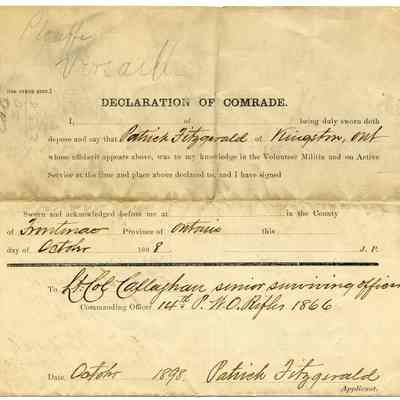 [SEE OTHER SIDE.]
DECLARATION OF COMRADE.
I, of being duly sworn doth
depose and say that Patrick Fitzgerald of Kingston, Ont
whose affidavit appears above, was to my knowledge in the Volunteer Militia and on Active
Service at the time and place above declared to, and I have signed
Sworn and acknowledged before me at in the County
of Frontenac Province of Ontario this
day of October 8 J. P.
To Lt. Col Callaghan senior surviving officer
Commanding Officer 14th P. W. O. Rifles 1866
Date, October 1898 Patrick Fitzgerald
Applicant.